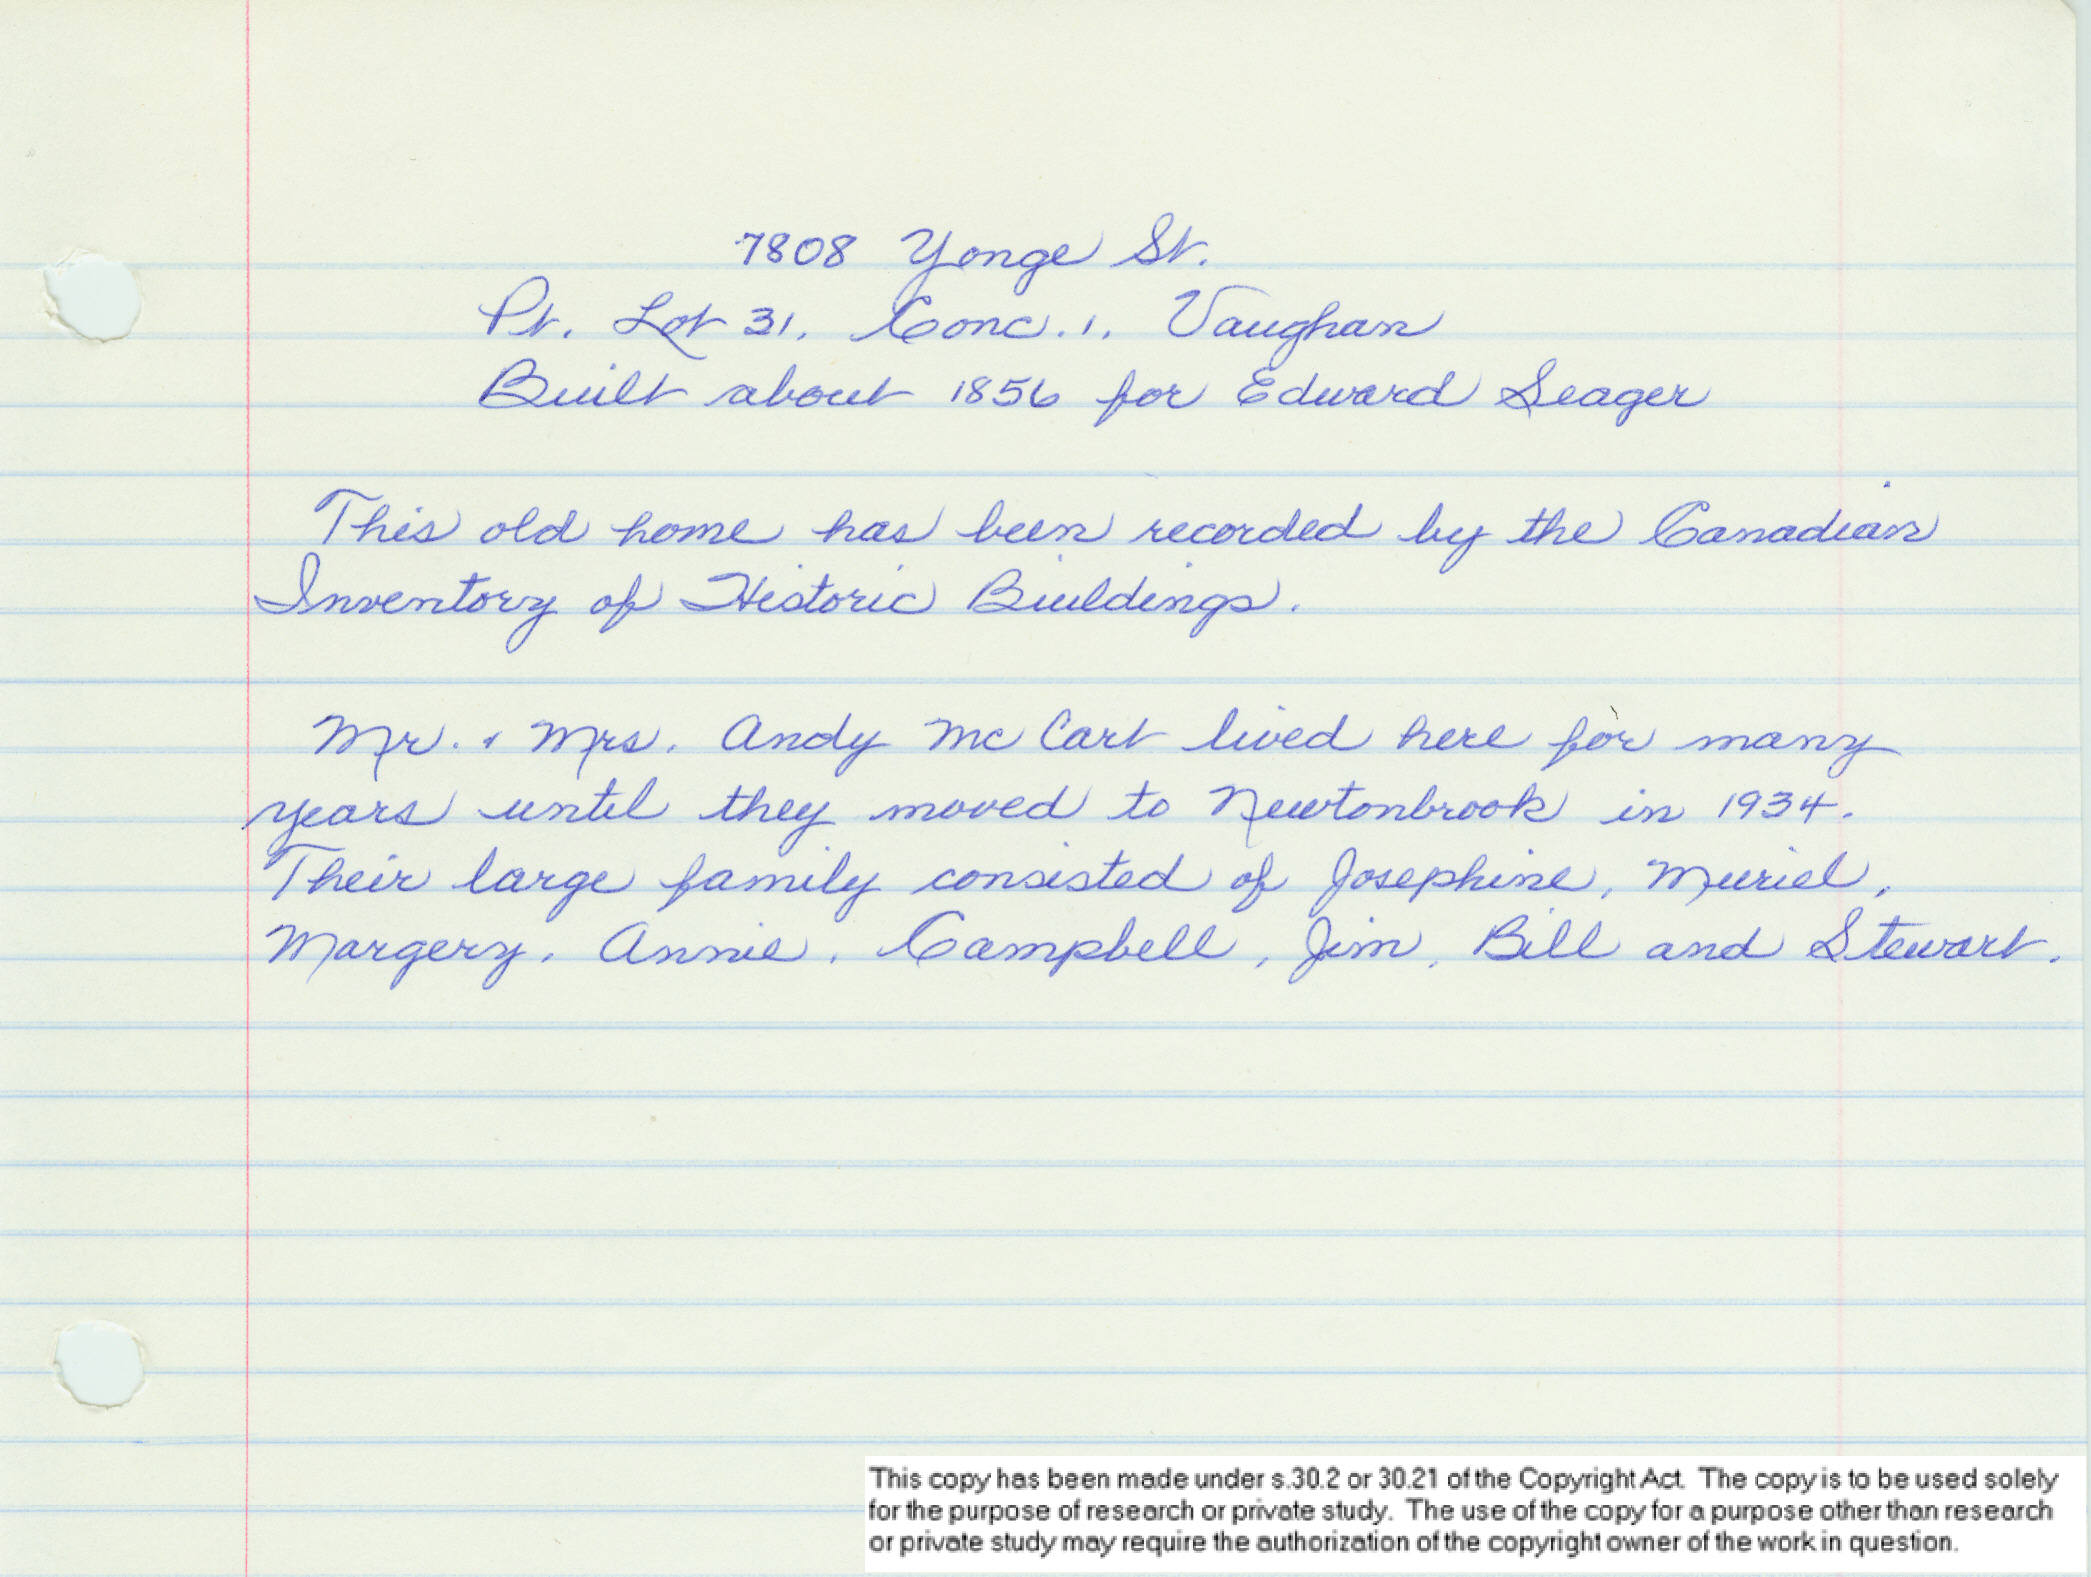 7808 Yonge St.
Pt. Lot 31, Conc. 1, Vaughan
Built about 1856 for Edward Seager
This old home has been recorded by the Canadian
Inventory of Historic Buildings.
Mr. & Mrs. Andy McCart lived here for many
years until they moved to Newtonbrook in 1934.
Their large family consisted of Josephine, Muriel,
Margery, Annie, Campbell, Jim, Bill and Stewart.
This copy has been made under s.30.2 or 30.21 of the Copyright Act. The copy is to be used solely
for the purpose of research or private study. The use of the copy for a purpose other than research
or private study may require the authorization of the copyright owner of the work in question.